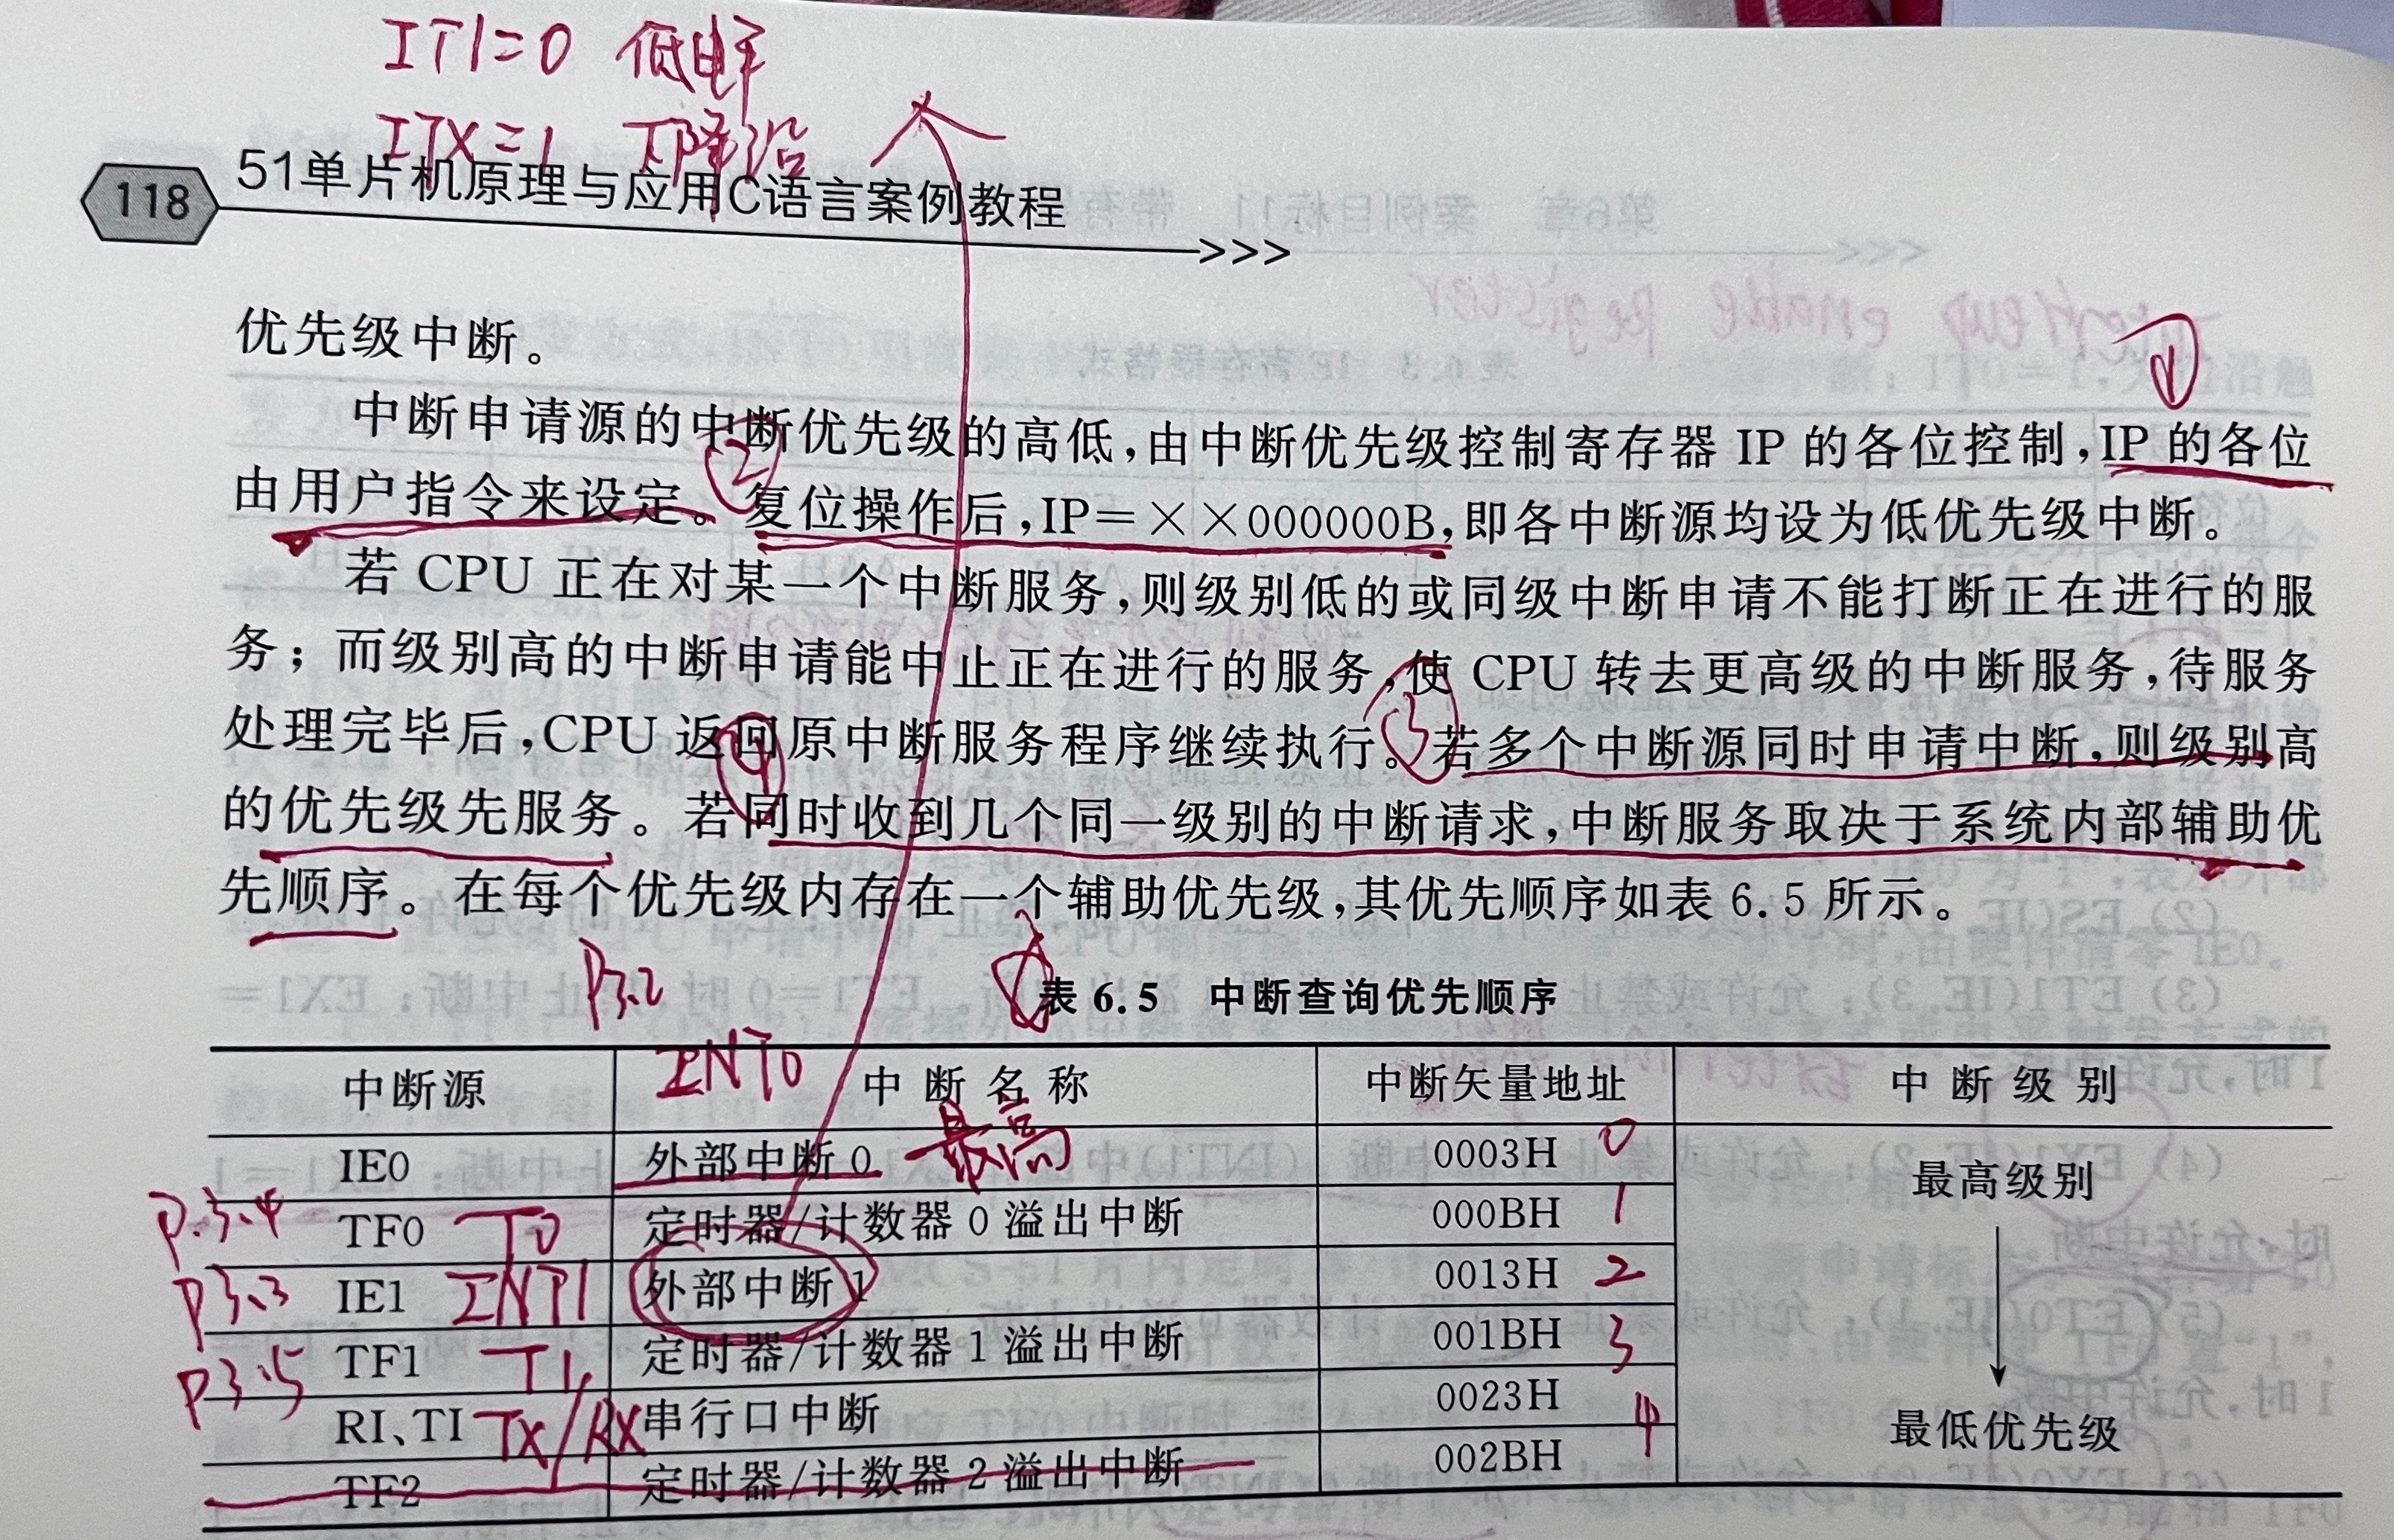 IT1=0 低电平
ITX=1 下降沿
118
51单片机原理与应用C语言案例教程
>>>
优先级中断。
①
中断申请源的中断优先级的高低,由中断优先级控制寄存器 IP 的各位控制,IP 的各位
由用户指令来设定。②复位操作后,IP=××000000B,即各中断源均设为低优先级中断。
若 CPU 正在对某一个中断服务,则级别低的或同级中断申请不能打断正在进行的服
务;而级别高的中断申请能中止正在进行的服务,使 CPU 转去更高级的中断服务,待服务
处理完毕后,CPU 返回原中断服务程序继续执行。③若多个中断源同时申请中断,则级别高
的优先级先服务。④若同时收到几个同一级别的中断请求,中断服务取决于系统内部辅助优
先顺序。在每个优先级内存在一个辅助优先级,其优先顺序如表 6.5 所示。
P3.2
表 6.5 中断查询优先顺序
INT0
中断源 中断名称 中断矢量地址 中断级别
IE0 外部中断 0 最高 0003H 0 最高级别
P.3.4 TF0 T0 定时器/计数器 0 溢出中断 000BH 1
P3.3 IE1 INT1 外部中断 1 0013H 2
P3.5 TF1 T1 定时器/计数器 1 溢出中断 001BH 3
RI、TI TX/RX 串行口中断 0023H 4 最低优先级
TF2 定时器/计数器 2 溢出中断 002BH